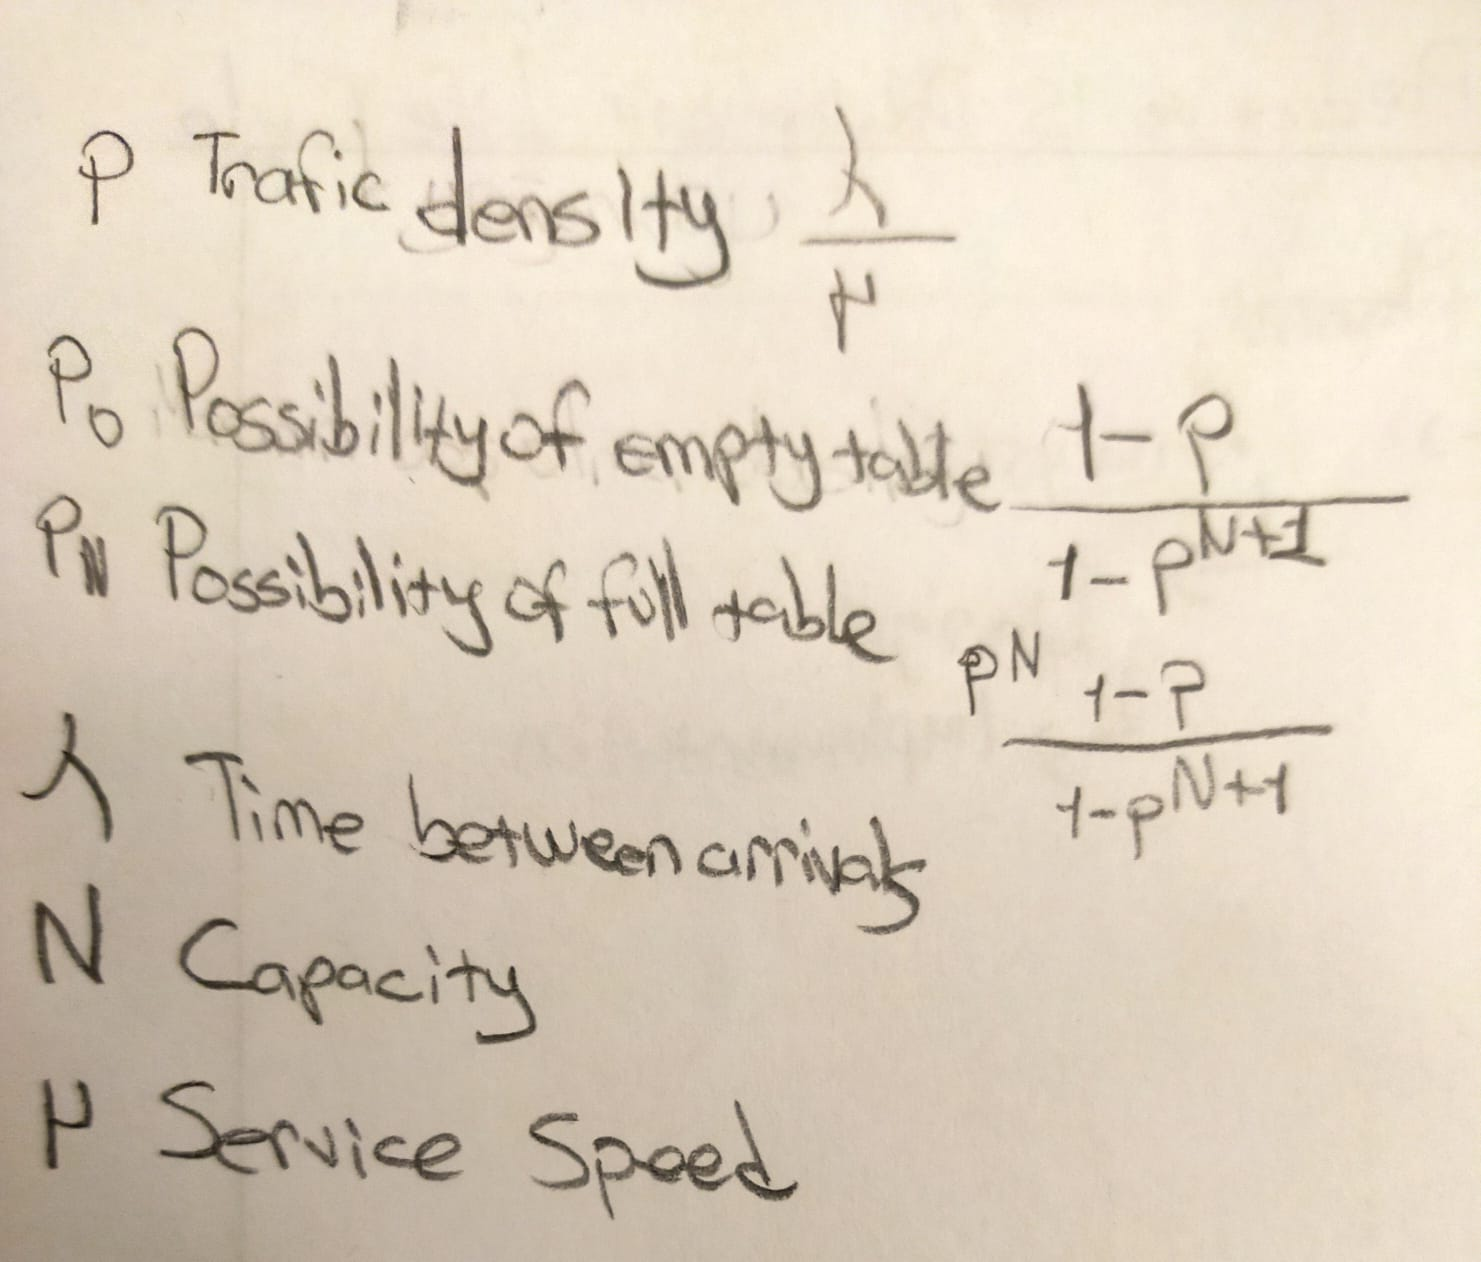 ρ Trafic density λ/μ
P₀ Possibility of empty table (1-ρ)/(1-ρᴺ⁺¹)
Pɴ Possibility of full table ρᴺ (1-ρ)/(1-ρᴺ⁺¹)
λ Time between arrivals
N Capacity
μ Service Speed